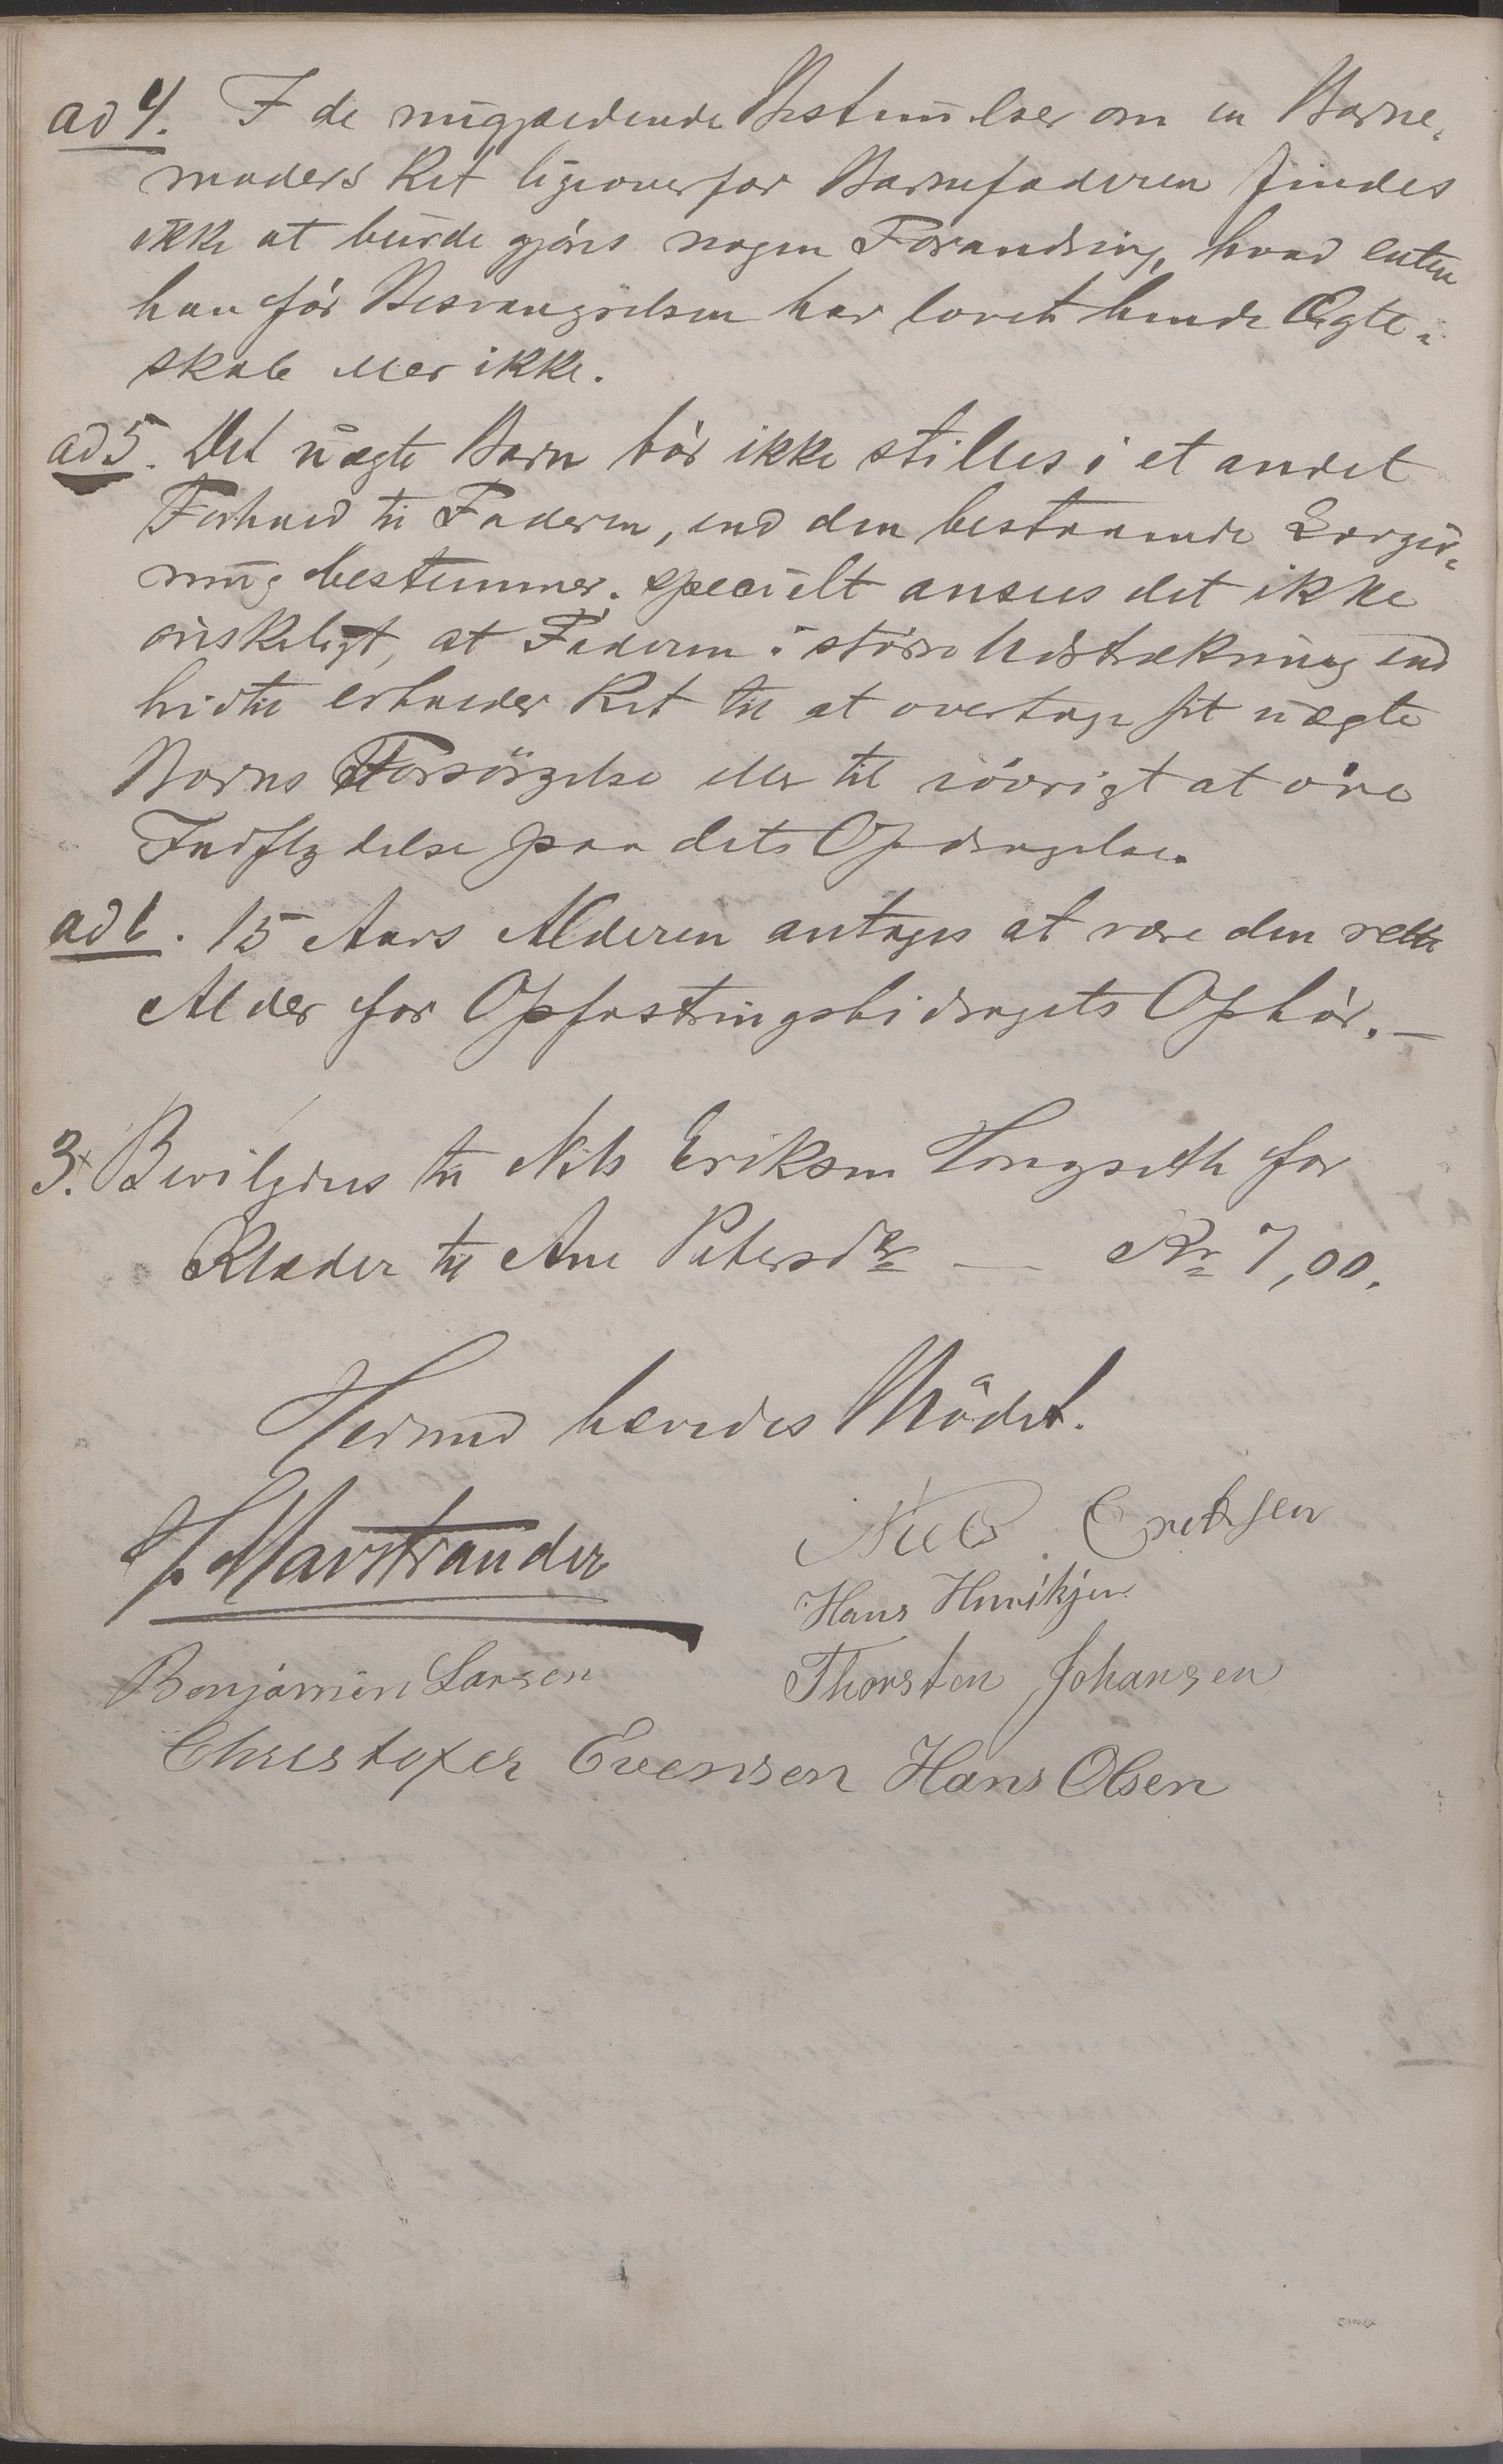 ad 4. I de nugjældende Bestemmelser om en Barne-
moders Ret ligeoverfor Barnefaderen findes
ikke at burde gjöres nogen Forandring, hvad enten
han för Besvangrelsen har lovet hende Ægte-
skab eller ikke.
ad 5. Det uægte Barn bör ikke stilles i et andet
Forhold til Faderen, end den bestaaende Lovgiv-
ning bestemmer. Specielt ansees det ikke
önskeligt, at Faderen i större Udstrækning end
hidtil erholder Ret til at overtage sit uægte
Barns Forsörgelse eller til iövrigt at öve
Indflydelse paa dets Opdragelse.
ad 6. 15 Aars Alderen antages at være den rette
Alder for Opfostringsbidragets Ophör. —
3. Bevilgedes til Nils Eriksen Tongseth for
Klæder til Ane Petersdtr — Kr 7,00.
Hermed hævedes Mödet.
J. Marstrander
Niels Erichsen
Hans Henriksen
Benjamin Larsen
Thorsten Johansen
Christofer Evensen Hans Olsen